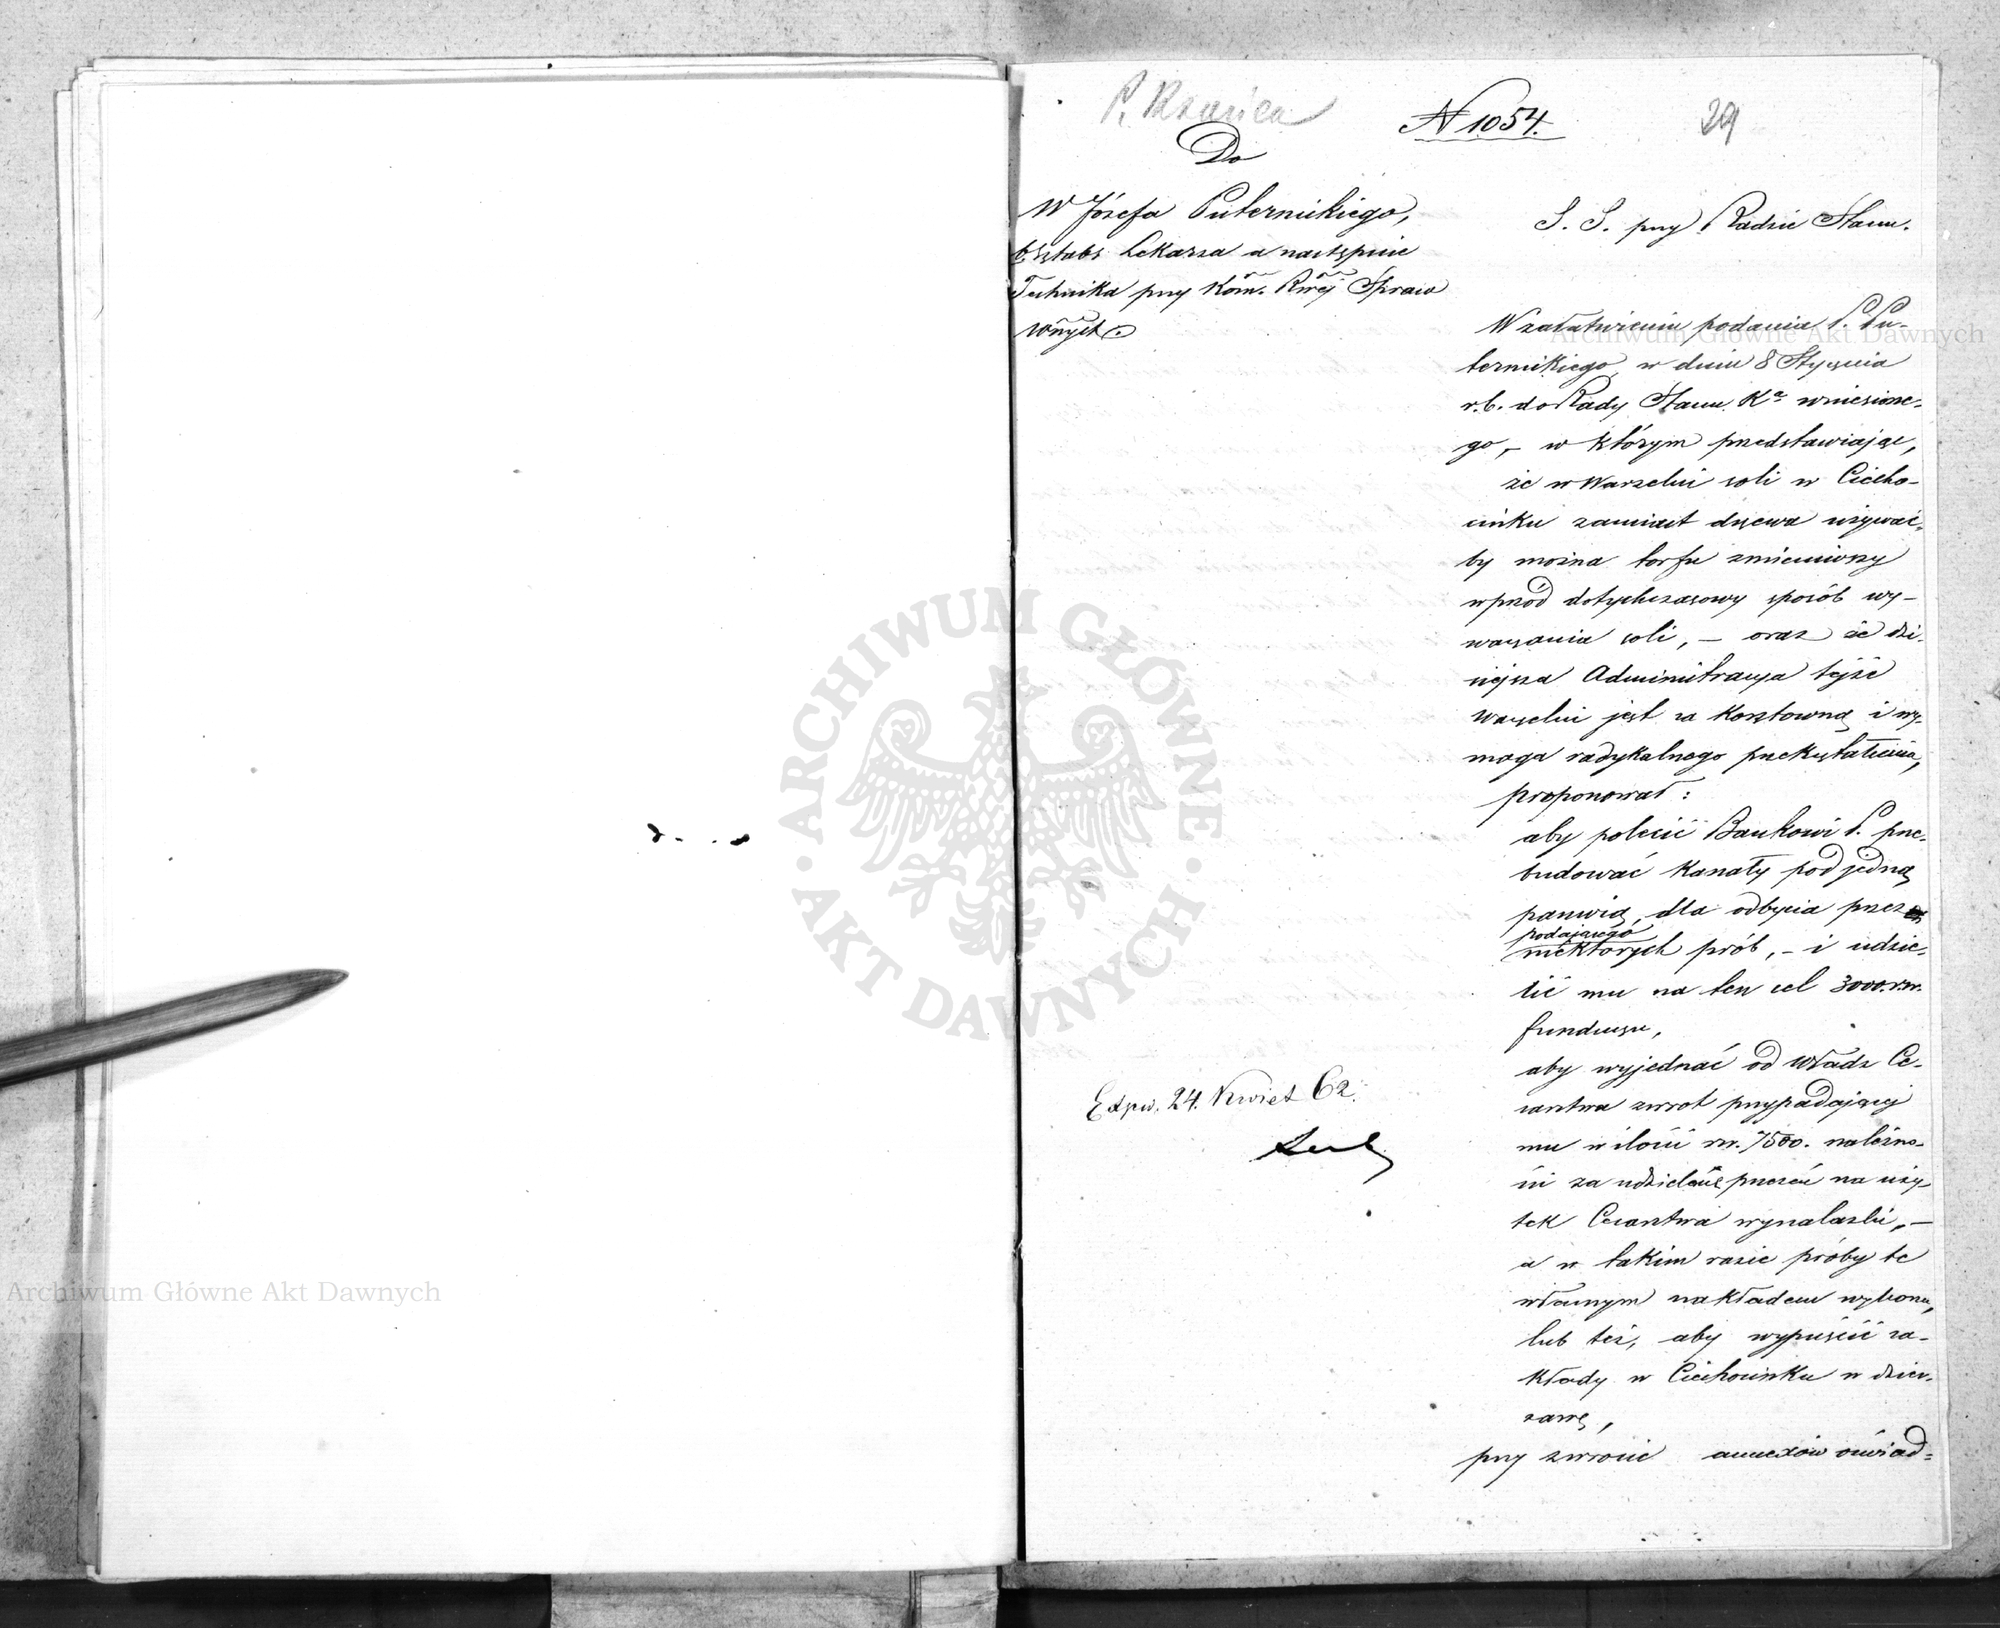 P. Rzanica
N 1054.
29
Do
W Józefa Puternickiego,
b. Sztabs Lekarza a następnie
Technika przy Kom. Rwéj Spraw
Wnych.
S. S. przy Radzie Stanu.
W załatwieniu podania P. Pu-
ternickiego w dniu 8 Stycznia
r.b. do Rady Stanu Ka wniesione-
go, – w którym przedstawiając,
że w Warzelni soli w Ciecho-
cinku zamiast drzewa używać-
by można torfu zmieniwszy
wprzód dotychczasowy sposób wy-
warzania soli, – oraz że dzi-
siejsza Administracya tejże
warzelni jest za kosztowną i wy-
maga radykalnego przekształcenia,
proponował:
aby polecić Bankowi P. prze-
budować kanały pod jedną
panwią, dla odbycia przez
podającego
niektórych prób, – i udzie-
lić mu na ten cel 3000.r.sr.
funduszu,
aby wyjednać od Władz Ce-
sarstwa zwrot przypadającej
mu w ilości rsr. 7500. należno-
ści za udzielone przezeń na uży-
tek Cesarstwa wynalazki, –
a w takim razie próby te
własnym nakładem wykona,
lub też, aby wypuścić za-
kłady w Ciechocinku w dzier-
zawę,
przy zwrocie annexów oświad-
Expw. 24. Kwiet 62.
Archiwum Główne Akt Dawnych
ARCHIWUM GŁÓWNE
· AKT DAWNYCH ·
Archiwum Główne Akt Dawnych